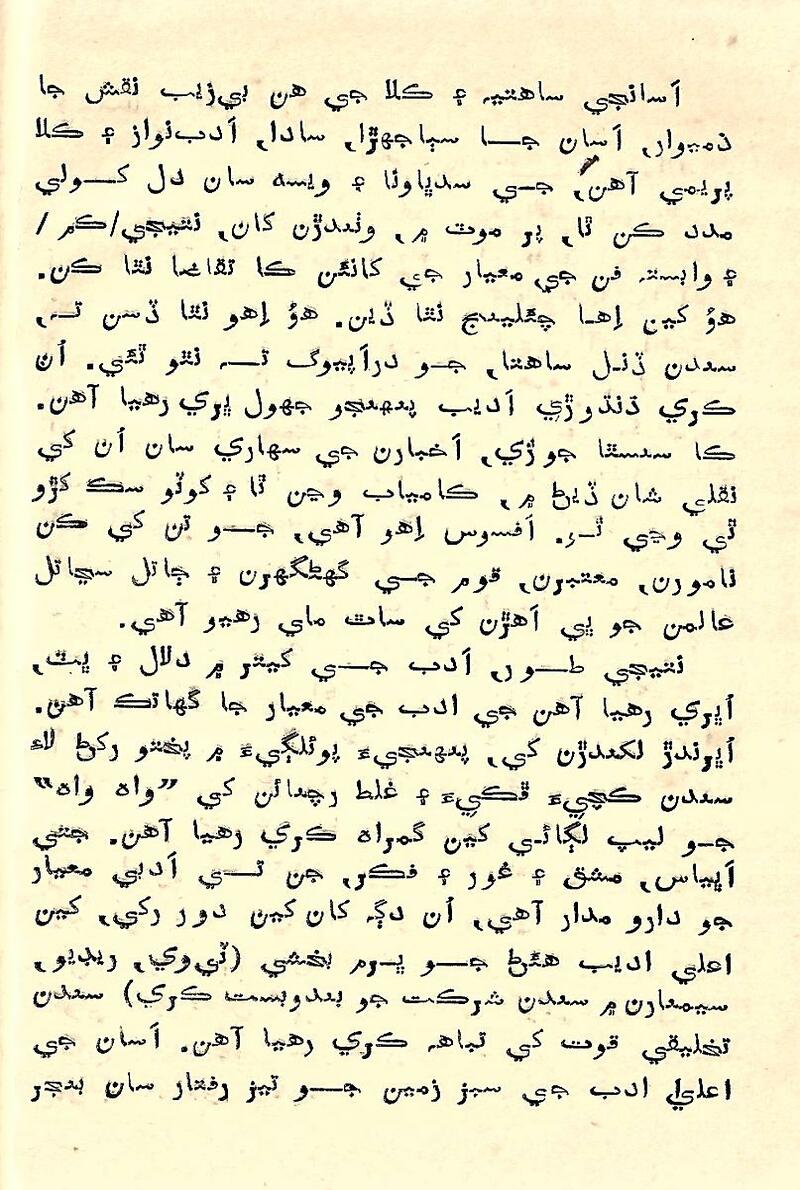 اَسانجي ساهتيہ ۽ ڪلا جي هن بي‌زيب نقش جا
ذميوار، اَسان جـــا سٻاجهڙا، سادا، اَدب‌نواز ۽ ڪلا
پريمي آهن، جـي سدڀاونا ۽ ويسه سان دل کــولي
مدد ڪن ٿا، پر موٽ ۾، وٺندڙن کان، نتيجي/ڪم/
۽ وابسته فن جي معيار جي کانئن ڪا تقاضا نٿا ڪن.
هوُ کين اِهـا چئلينج نٿا ڏين. هوُ اِهو نٿا ڏسن تـه،
سندن ڏنـل ساهتا، جـو درُاُپيوگ تــه نٿو ٿئي. اُن
ڪري ڌنڌوڙي اَديب پنهنجو جهول ڀري رهيا آهن.
ڪا سنسٿا جوڙي، اَخبارن جي سهاري سان اُن کي
نقلي شان ڏيڻ ۾، ڪامياب وڃن ٿا ۽ کوٽو سڪ کڙو
ٿي وڃي ٿـو. اَفسوس اِهو آهي، جــو تن کي ڪن
نامورن، معتبرن، قوم جــي گهڻگهرن ۽ ڄاتل سڃاتل
عالمن جو ڀي اَهڙن کي ساٿ ملي رهيو آهي.
نتيجي طــور، اَدب جــي کيتر ۾ دلال ۽ ڀٽ،
اُڀري رهيا آهن جي ادب جي معيار جا گهاتڪ آهن.
اُڀرندڙ لکندڙن کي، پنهنجيءَ پوئلڳيءَ ۾ پختو رکڻ لاءِ
سندن ڪچيءَ ڦڪيءَ ۽ غلط رچنائن کي ”واه واه“
جـو ليپ لڳائي کين گمراه ڪري رهيا آهن. جتي
اَڀياس، مشق ۽ غور ۽ فڪر، جن تــي اَدبي معيار
جو دارو مدار آهي، اُن دڳه کان کين دور رکي، کين
اعليٰ اديب هئڻ جــو ڀـرم بخشي (ٽي‌وي، ريڊيو،
سيمنارن ۾ سندن شرڪت جو بندوبست ڪري) سندن
تخليقي قوت کي تباهه ڪري رهيا آهن. اَسان جي
اعليٰ ادب جي سبز زمين جــو تيز رفتار سان بنجر